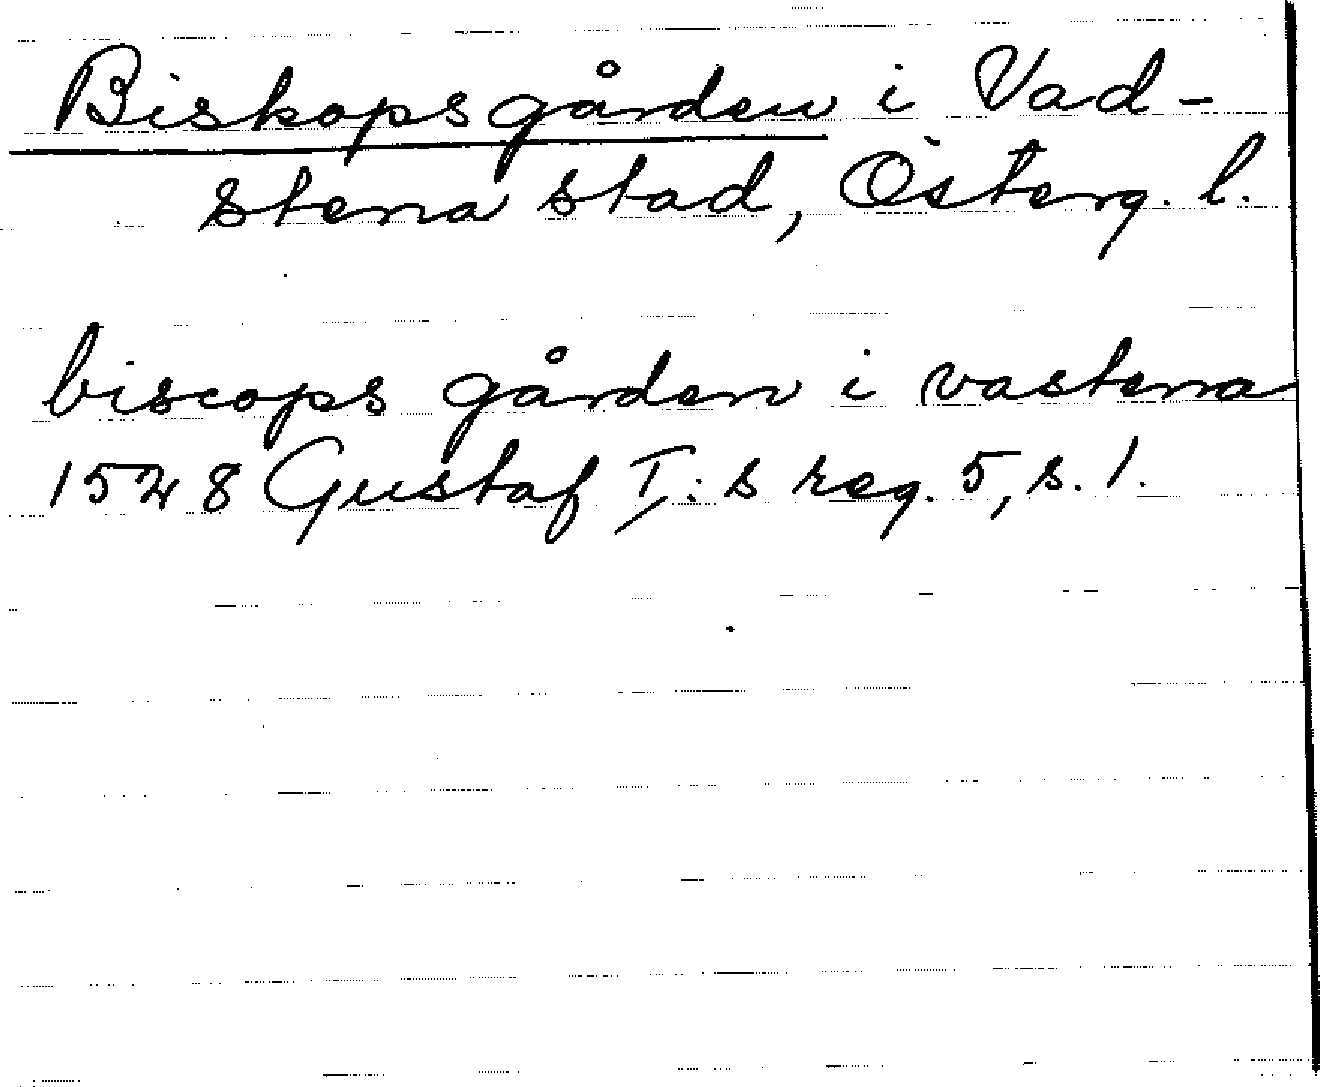 Biskopsgården i Vad-
stena stad, Österg. l.
biscops gården i vastena
1528 Gustaf I:s reg. 5, s. 1.